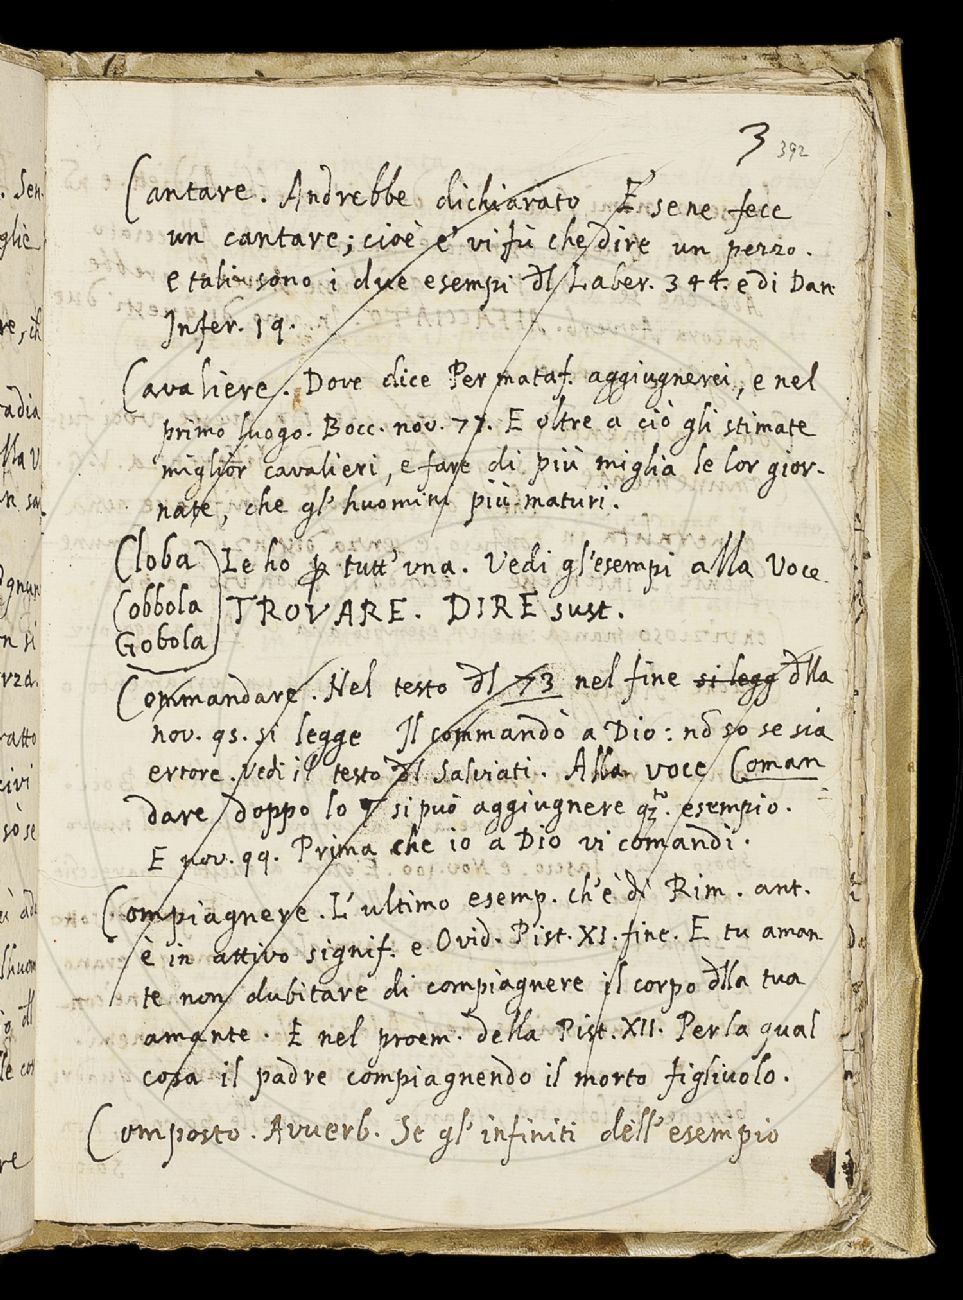 3 392
Cantare. Andrebbe dichiarato E' se ne fece
un cantare; cioè e' vi fù che dire un pezzo.
e tali sono i due esempi dl Laber. 344. e di Dan
Infer. 19.
Cavaliere. Dove dice Per mataf. aggiugnerei, e nel
primo luogo. Bocc. nov. 77. E oltre a ciò gli stimate
miglior cavalieri, e fare di più miglia le lor gior-
nate, che gl'huomini più maturi.
Cloba
Cobbola
Gobola
Le ho p tutt'una. Vedi gl'esempi alla Voce
TROVARE. DIRE sust.
Commandare. Nel testo dl 73 nel fine si legg dlla
nov. 95. si legge Il commandò a Dio: nō so se sia
errore. Vedi il testo dl Salviati. Alla voce Coman
dare doppo lo 9 si può aggiugnere qto. esempio.
E nov. 99. Prima che io a Dio vi comandi.
Compiagnere. L'ultimo esemp. ch'è di Rim. ant.
è in attivo signif. e Ovid. Pist. XI. fine. E tu aman
te non dubitare di compiagnere il corpo dlla tua
amante. E nel proem. della Pist. XII. Per la qual
cosa il padre compiagnendo il morto figliuolo.
Composto. Avverb. Se gl'infiniti dell'esempio